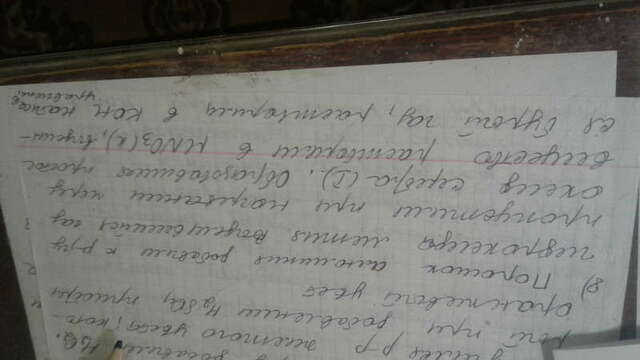 р-р желтого цвета, кото-
рый при добавлении H2SO4 приобрел
оранжевый цвет
8) Порошок алюминия добавили к р-ру
гидроксида лития. Выделившийся газ
пропустили при нагревании через
оксид серебра (I). Образовавшееся простое
вещество растворили в HNO3(к), выдели-
ся бурый газ, растворили в KOH
уравнения